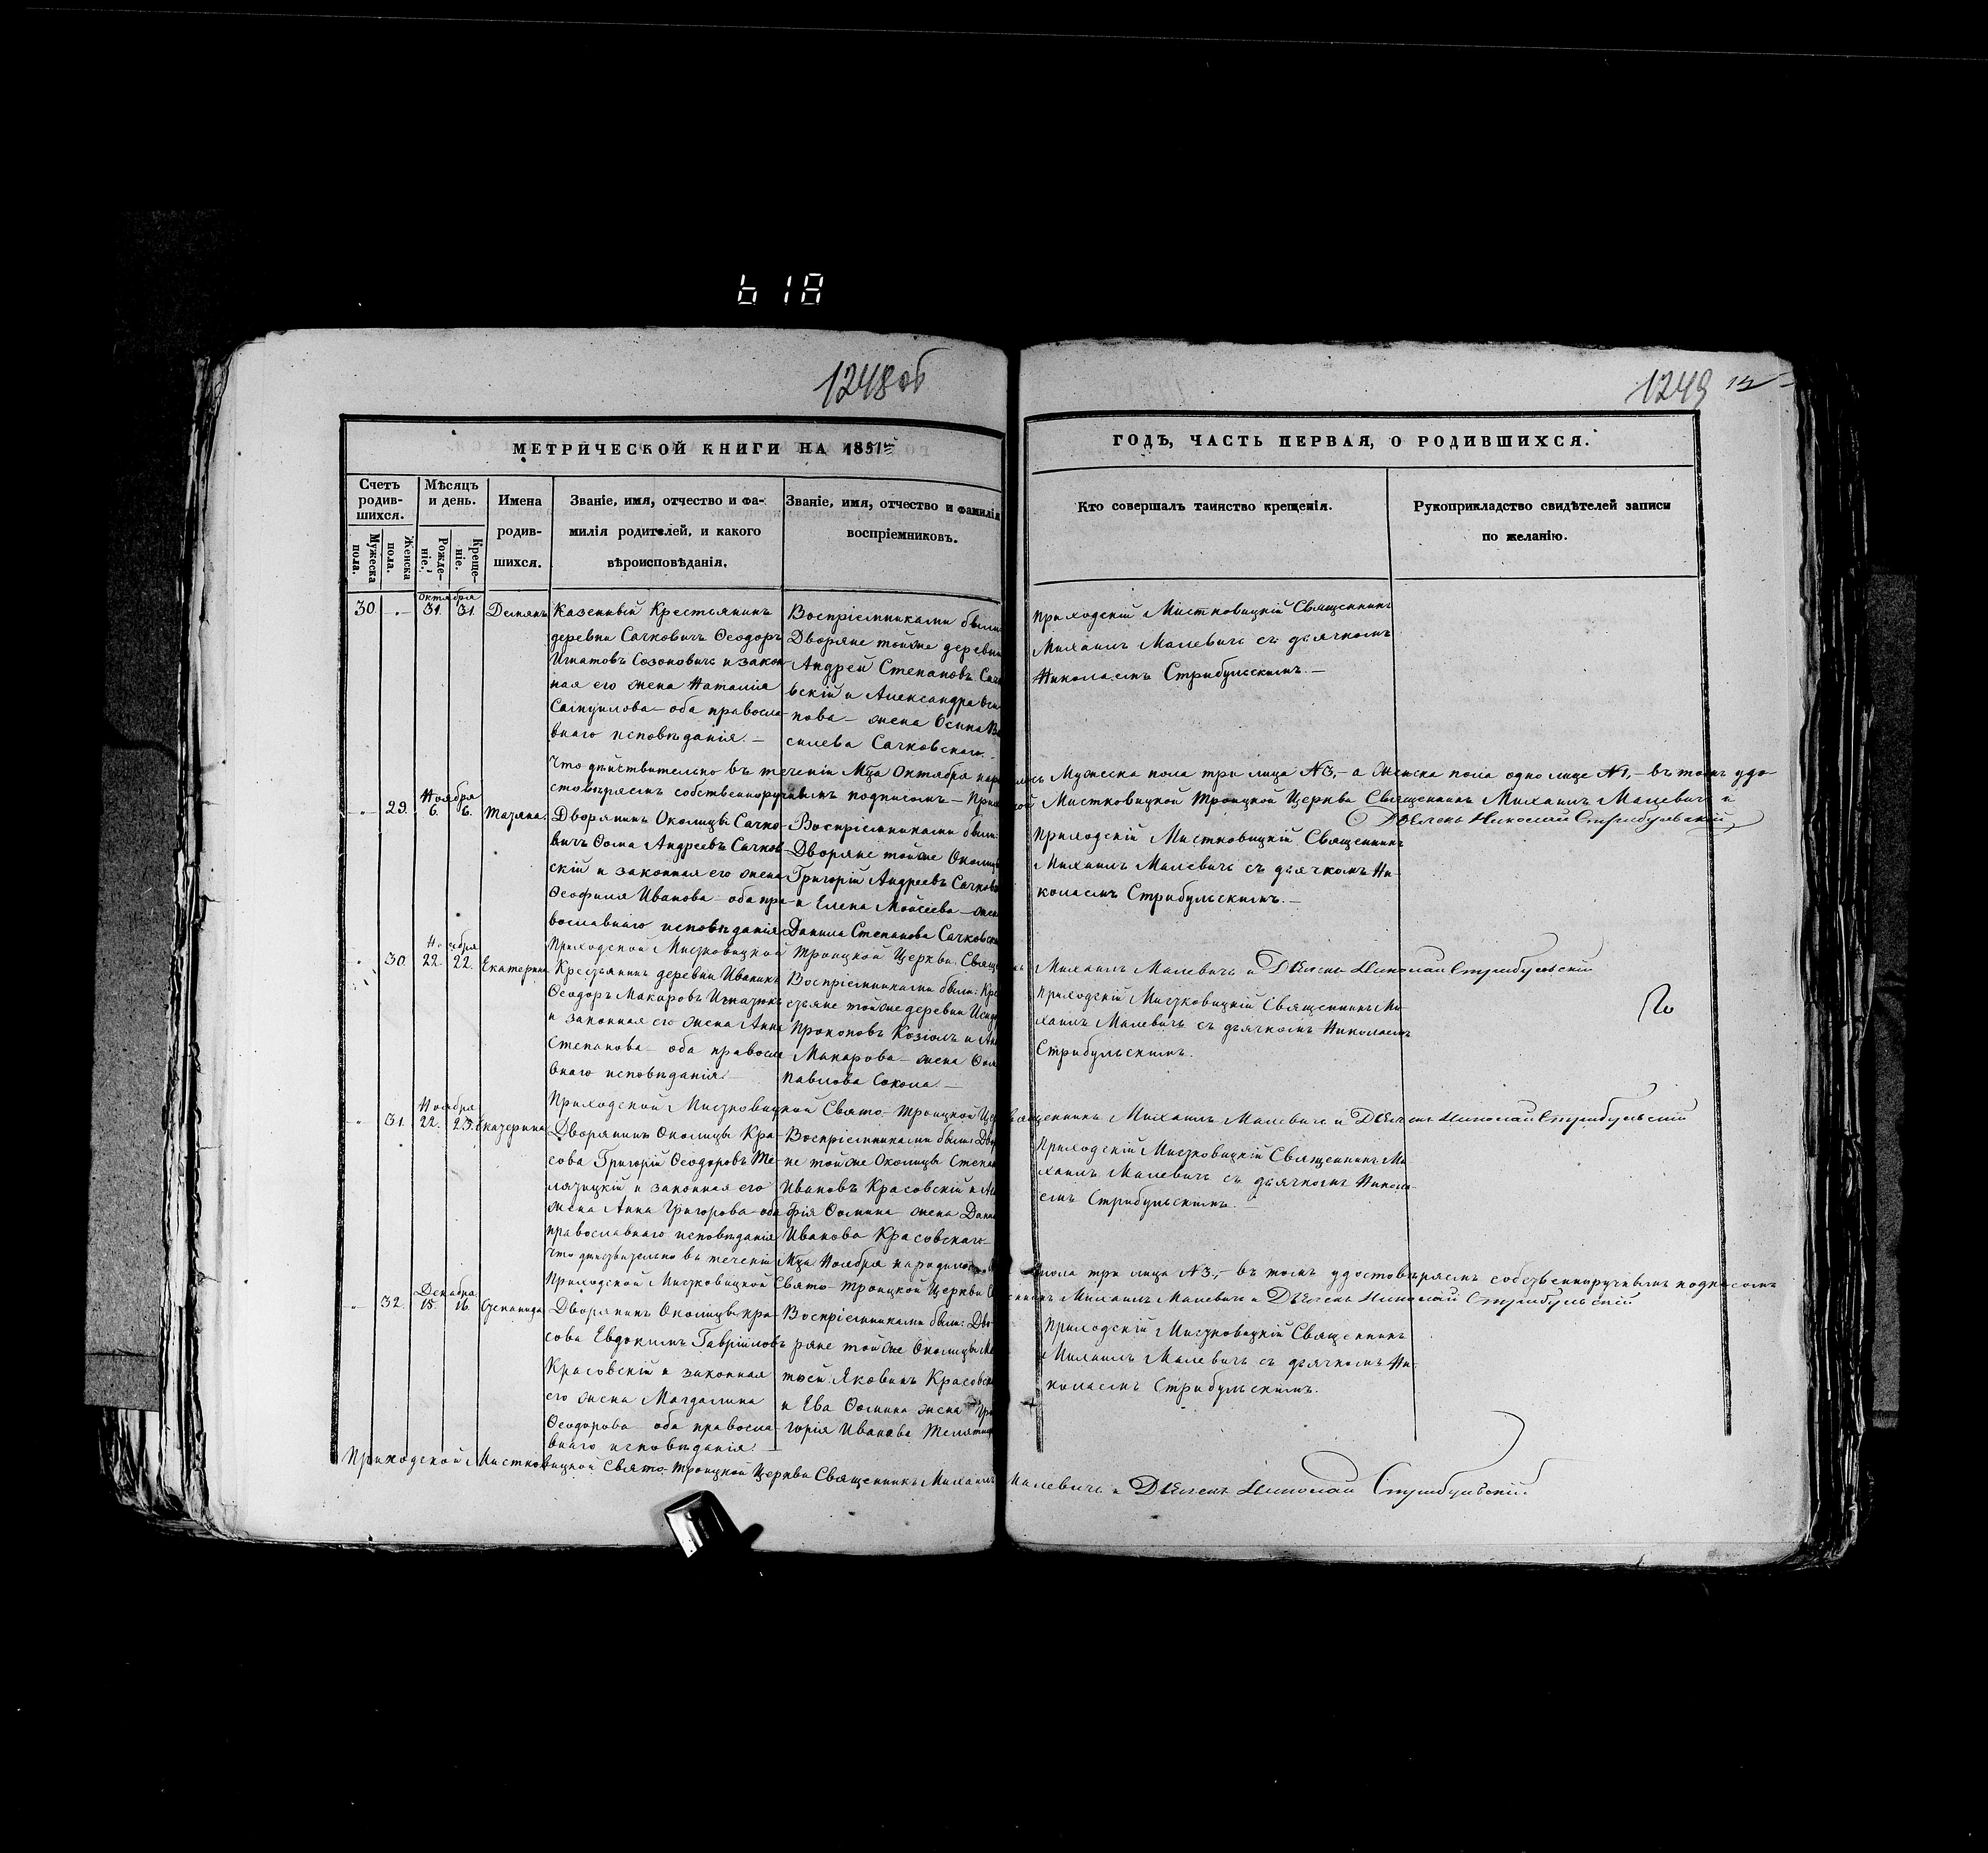 618
1248об
1249
МЕТРИЧЕСКОЙ КНИГИ НА 1851
ГОДЪ, ЧАСТЬ ПЕРВАЯ, О РОДИВШИХСЯ.
Счетъ родив-шихся.
Мужеска пола.
Женска пола.
Мѣсяцъ и день.
Рожде-ніе.
Креще-ніе.
Имена родив-шихся.
Званіе, имя, отчество и фа-
милія родителей, и какого
вѣроисповѣданія.
Званіе, имя, отчество и фамилія
воспріемниковъ.
Кто совершалъ таинство крещенія.
Рукоприкладство свидѣтелей записи
по желанію.
30 Октября 31. 31. Демянъ
Казенный Крестьянинъ
деревни Сачковичъ Ѳеодоръ
Игнатовъ Созоновичъ и закон
ная его жена Наталія
Самуилова – оба правосла-
внаго исповѣданія. –
Воспріемниками были
Дворяне тойже деревни
Андрей Степановъ Сачк
вскій и Александра Оси
пова – жена Осипа Ва
силева Сачковскаго. –
Приходскій Мистковицкій Священникъ
Михаилъ Малевичъ съ дьячкомъ
Николаемъ Стрибульскимъ. –
Что дѣйствительно въ теченіи Мца Октября нар лось Мужеска пола три лица №3, – а Женска пола одно лице №1, – въ томъ удо
стовѣряемъ собственноручнымъ подписомъ – При кой Мистковицкой Троицкой Церкви Священникъ Михаилъ Малевичъ и
Дьячекъ Николай Стрибульскій
29. Ноября 6. 6. Татяна.
Дворянинъ Околицы Сачко-
вичъ Ѳома Андреевъ Сачков
скій и законная его жена
Ѳеофиля Иванова – оба пра-
вославнаго исповѣданія
Воспріемниками были
Дворяне тойже Околицы
Григорій Андреевъ Сачков
и Елена Мойсеева – жен
Данила Степанова Сачковск
Приходскій Мистковицкій Священникъ
Михаилъ Малевичъ съ дьячкомъ Ни-
колаемъ Стрибульскимъ. –
Приходской Мистковицкой Троицкой Церкви Свящ Михаилъ Малевичъ и Дьячекъ Николай Стрибульскій
30. Ноября 22. 22. Екатерина
Крестьянинъ деревни Иваникъ
Ѳеодоръ Макаровъ Игнатюкъ
и законная его жена Анна
Степанова – оба правосла
внаго исповѣданія. –
Воспріемниками были: Кре
стьяне тойже деревни Исид
Прокоповъ Козіолъ и Ан
Макарова – жена Ѳом
Павлова Сокола. –
Приходскій Мистковицкій Священникъ Ми-
хаилъ Малевичъ съ дьячкомъ Николаемъ
Стрибульскимъ.
Приходской Мистковицкой Свято-Троицкой Цер вященникъ Михаилъ Малевичъ и Дьячекъ Николай Стрибульскій
31. Ноября 22. 23. Екатерина
Дворянинъ Околицы Кра-
сова Григорій Ѳеодоровъ Те-
лятицкій и законная его
жена Анна Григорова – оба
православнаго исповѣданія
Воспріемниками были: Двор
не тойже Околицы Степан
Ивановъ Красовскій и Аг
фія Ѳомина – жена Дани
Иванова Красовскаго. –
Приходскій Мистковицкій Священникъ Ми
хаилъ Малевичъ съ дьячкомъ Никола-
емъ Стрибульскимъ. –
Что дѣйствительно въ теченіи Мца Ноября народилось пола три лица №3, – въ томъ удостовѣряемъ собственноручнымъ подписомъ
Приходской Мистковицкой Свято-Троицкой Церкви С никъ Михаилъ Малевичъ и Дьячекъ Николай Стрибульскій
32. Декабра 15. 16. Степанида
Дворянинъ Околицы Кра-
сова Евдокимъ Гавріиловъ
Красовскій и законная
его жена Магдалина
Ѳеодорова – оба правосла-
внаго исповѣданія. –
Воспріемниками были: Дво-
ряне тойже Околицы Ма
тѳей Яковинъ Красовск
и Ева Ѳомина жена Гри
горія Иванова Телятиц
Приходскій Мистковицкій Священникъ
Михаилъ Малевичъ съ дьячкомъ Ни-
колаемъ Стрибульскимъ.
Приходской Мистковицкой Свято-Троицкой Церкви Священникъ Михаилъ Малевичъ и Дьячекъ Николай Стрибульскій